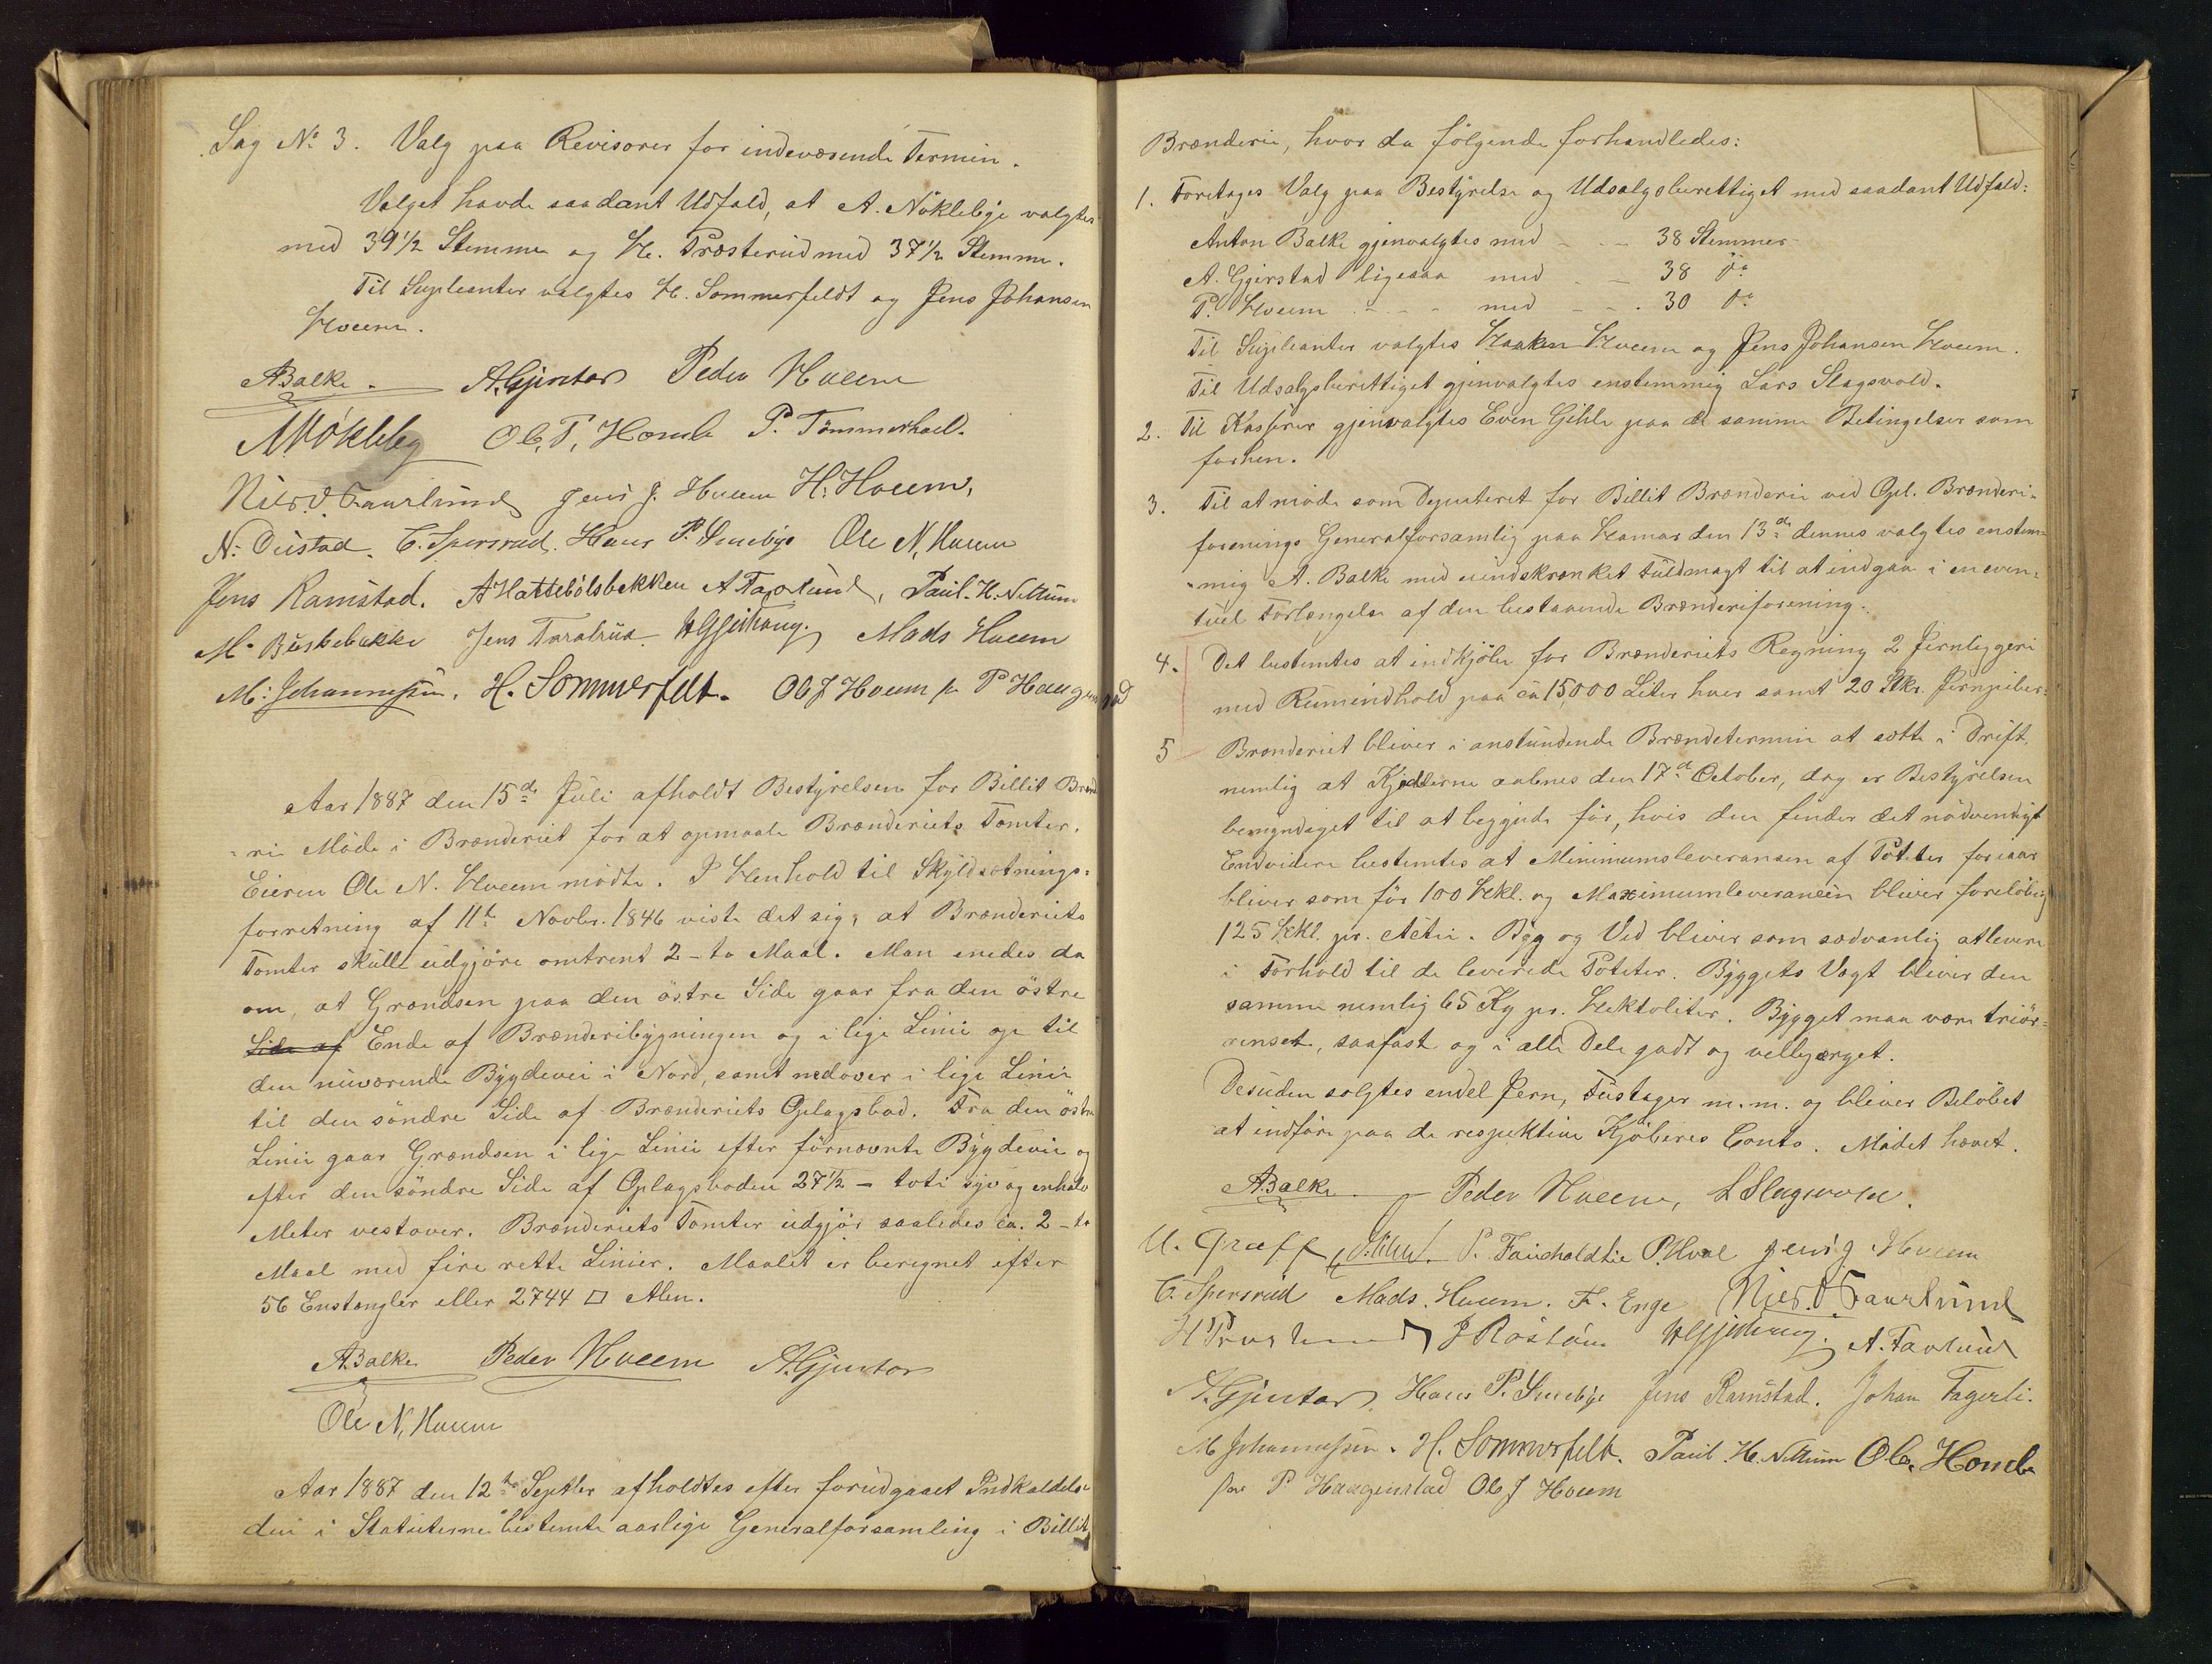 Sag No 3. Valg paa Revisorer for indeværende Termin.
Valget havde saadant Udfald, at A. Nøkleby valgtes
med 39 1/2 Stemmer og H. Træsterud med 37 1/2 Stemme.
Til Supleanter valgtes H. Sommerfeldt og Jens Johansen
Hveem.
ABalke. A. Gjerstad Peder Hveem
A Nøkleby Ole T. Homb P. Tømmerhol.
Nils O. Faurlund Jens J. Hveem H. Hveem,
N. Øistad. C. Spersrud. Hans P. Smebye Ole N. Hveem
Jens Ramstad. A Hattebölsbekken A Faurlund, Paul H. Nettum
M. Biskebakke Jens Taralrud H Gjethaug. Mads Hveem
M. Johannesen. H. Sommerfelt. Ole J Hveem for P Haagenstad
Aar 1887 den 15de Juli afholdt Bestyrelsen for Billit Brænde
ri Møde i Brænderiet for at opmaale Brænderiets Tomter.
Eieren Ole N. Hveem mødte. I Henhold til Skyldsætnings-
forretning af 11te Novbr. 1846 viste det sig, at Brænderiets
Tomter skulle udgjøre omtrent 2 - to Maal. Man enedes da
om, at Grændsen paa den østre Side gaar fra den østre
Side af Ende af Brænderibygningen og i lige Linie op til
den nuværende Bygdevei i Nord, samt nedover i lige Linie
til den søndre Side af Brænderiets Oplagsbod. Fra den østre
Linie gaar Grændsen i lige Linie efter førnævnte Bygdevei og
efter den søndre Side af Oplagsboden 27 1/2 - toti syv og enhalv
Meter vestover. Brænderiets Tomter udgjør saaledes ca. 2 - to
Maal med fire rette Linier. Maalet er beregnet efter
56 Enstængler eller 2744 □ Alen.
ABalke Peder Hveem A. Gjerstad
Ole N. Hveem
Aar 1887 den 12te Septbr afholdtes efter forudgaaet Indkaldelse
den i Statuterne bestemte aarlige Generalforsamling i Billit
Brænderi, hvor da følgende forhandledes:
1. Foretages Valg paa Bestyrelse og Udsalgsberettiget med saadant Udfald:
Anton Balke gjenvalgtes med - - - 38 Stemmer
A. Gjerstad ligesaa med - - 38 do
P. Hveem - - - med - - - 30 do
Til Supleanter valgtes Haaken Hveem og Jens Johansen Hveem.
Til Udsalgsberettiget gjenvalgtes enstemmig Lars Slagsvold.
2. Til Kasserer gjenvalgtes Even Gihle paa de samme Betingelser som
forhen.
3. Til at møde som Deputeret for Billit Brænderi ved Opl. Brænderi-
forenings Generalforsamlig paa Hamar den 13de dennes valgtes enstem-
mig A. Balke med uindskrænket Fuldmagt til at indgaa i en even-
tuel Forlængelse af den bestaaende Brænderiforening.
4. Det bestemtes at indkjøbe for Brænderiets Regning 2 Jernliggeri
med Rumindhold paa ca 15,000 Liter hver samt 20 Stkr. Jernpiber.
5 Brænderiet bliver i anstundende Brændetermin at sætte i Drift
nemlig at Kjedlerne aabnes den 17de October, dog er Bestyrelsen
bemyndiget til at begynde før, hvis den finder det nødvendigt
Endvidere bestemtes at Minimumsleverancen af Poteter foriaar
bliver som før 100 Hkl. og Maximumleverancen bliver foreløbig
125 Hkl. pr. Actie. Byg og Ved bliver som sædvanlig at levere
i Forhold til de leverede Poteter. Byggets Vægt bliver den
samme nemlig 65 Kg pr. Hektoliter. Bygget maa være triör-
renset, saafast og i alle Dele godt og velbjærget.
Desuden solgtes endel Jern, Fustager m.m. og bliver Beløbet
at indføre paa de respektive Kjøberes Conto. Mødet hævet.
ABalke Peder Hveem, L Slagsvold.
U. Graff P. Faucholdtie P. Hval Jens J. Hveem
C. Spersrud Mads Hveem. F. Enge Nils O. Faurlund
H Træsterud J Røstøen H Gjethaug. A. Faurlund
A. Gjerstad Hans P. Smebye Jens Ramstad. Johan Fagerli.
M Johannesen. H. Sommerfelt. Paul H. Nettum Ole Homb
for P Haagenstad Ole J Hveem